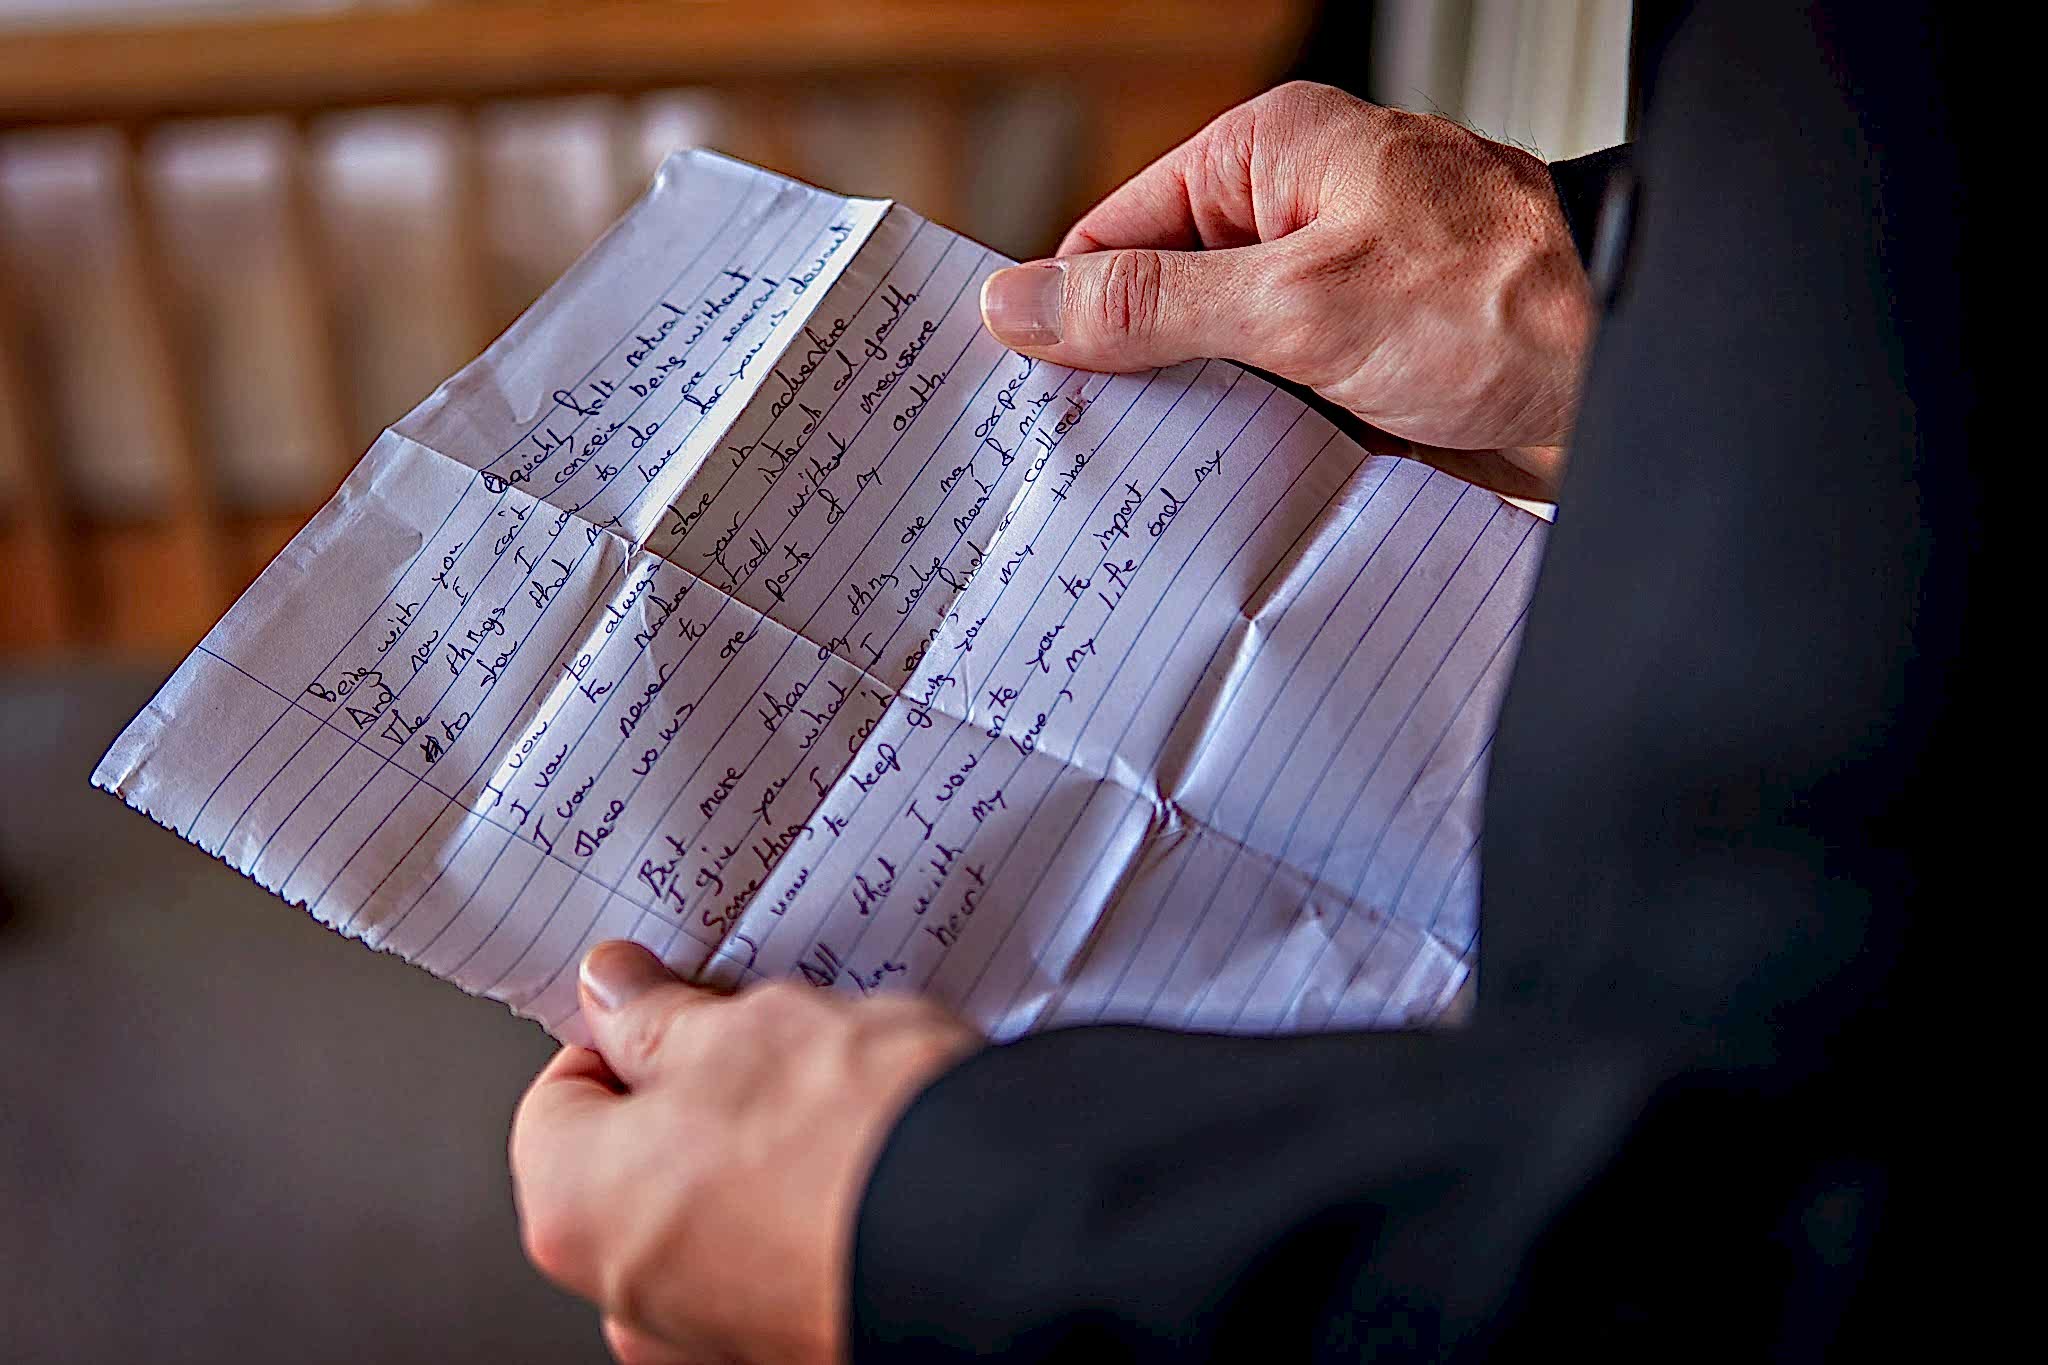 Being with you quickly felt natural
And now I can't conceive being without
The things I vow to do are several
to show that my love for you is devout
I vow to always share in adventure.
I vow to nurture your interests and growth.
I vow never to stroll without measure
These vows one part of my oath.
But more than any thing one may expect
I give you what I value most of mine
Something I can't earn, find or collect.
I vow to keep giving you my time.
All that I vow you to import
with my love, my life and my
heart